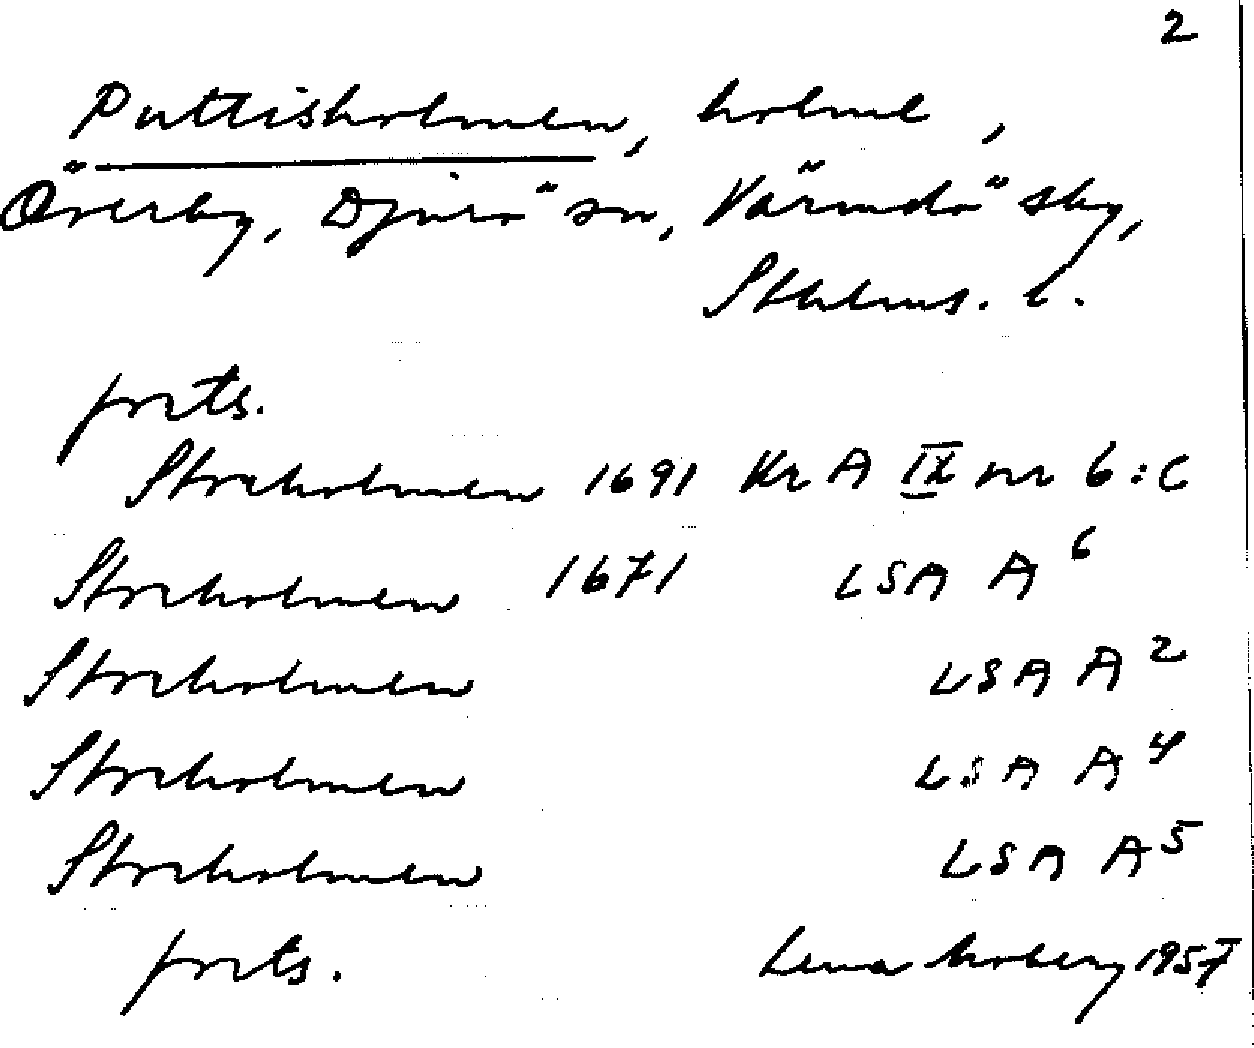 2
Puttisholmen, holme,
Överby, Djurö sn, Värmdö skg,
Sthlms. l.
forts.
Storholmen 1691 Kr A IX nr 6:C
Storholmen 1671 LSA A 6
Storholmen LSA A 2
Storholmen LSA A 4
Storholmen LSA A 5
forts. Lena Moberg 1957